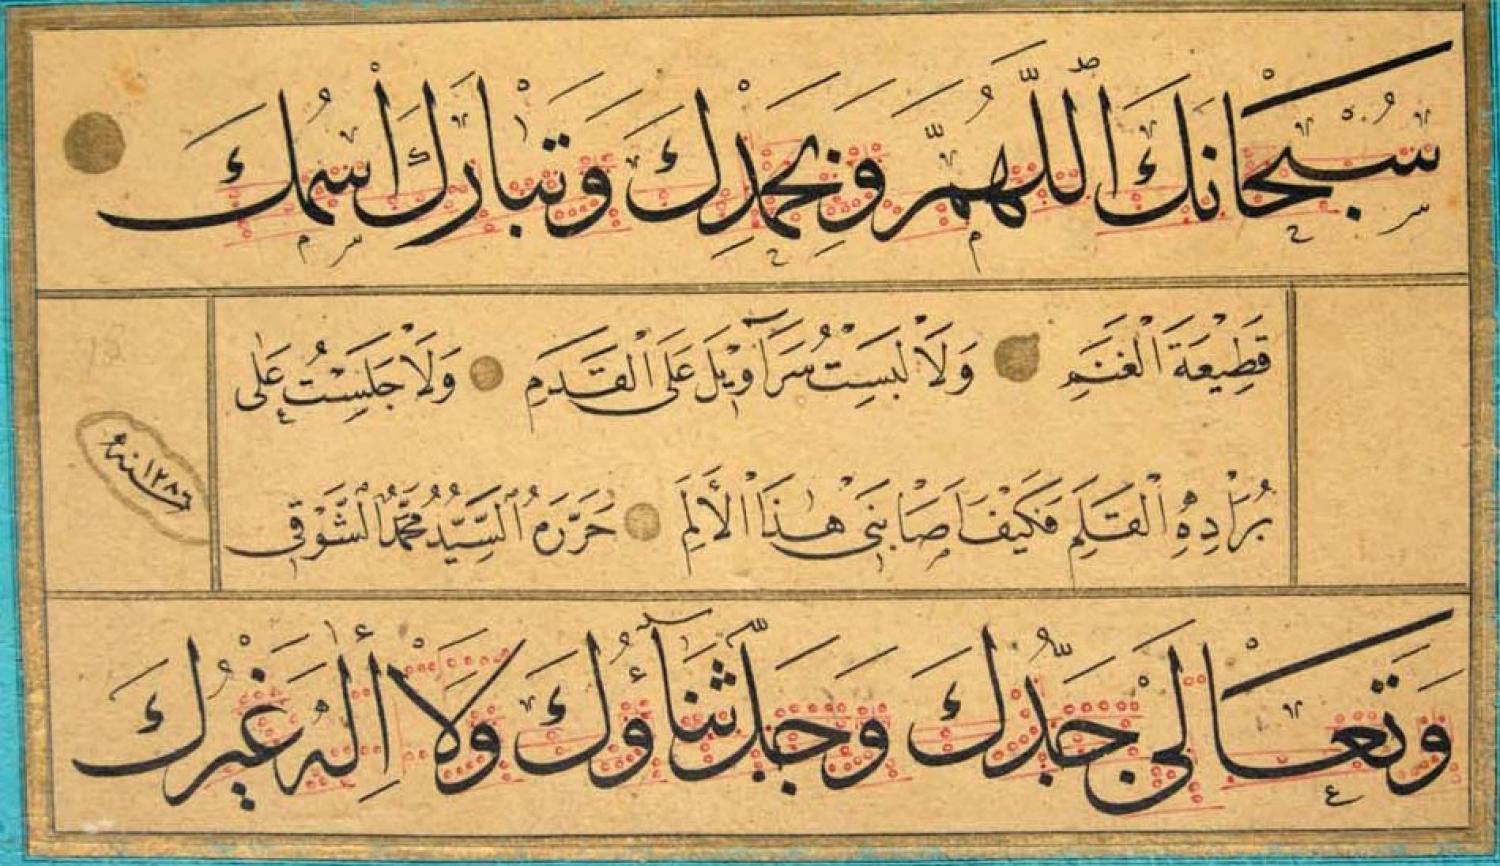 سُبْحَانَكَ اللّٰهُمَّ وَبِحَمْدِكَ وَتَبَارَكَ اسْمُكَ
قَطِيْعَةَ الْغَنَمِ وَلَا لَبِسْتُ سَرَاوِيْلَ عَلَى الْقَدَمِ وَلَا جَلَسْتُ عَلٰى
بُرَادِهِ الْقَلَمِ فَكَيْفَ اَصَابَنِيْ هٰذَا الْأَلَمِ حَرَّرَهُ السَّيِّدُ مُحَمَّدُ الشَّوْقِي
سنه ١٢٨٦
وَتَعَالٰى جَدُّكَ وَجَلَّ ثَنَاۤؤُكَ وَلَاۤ اِلٰهَ غَيْرُكَ